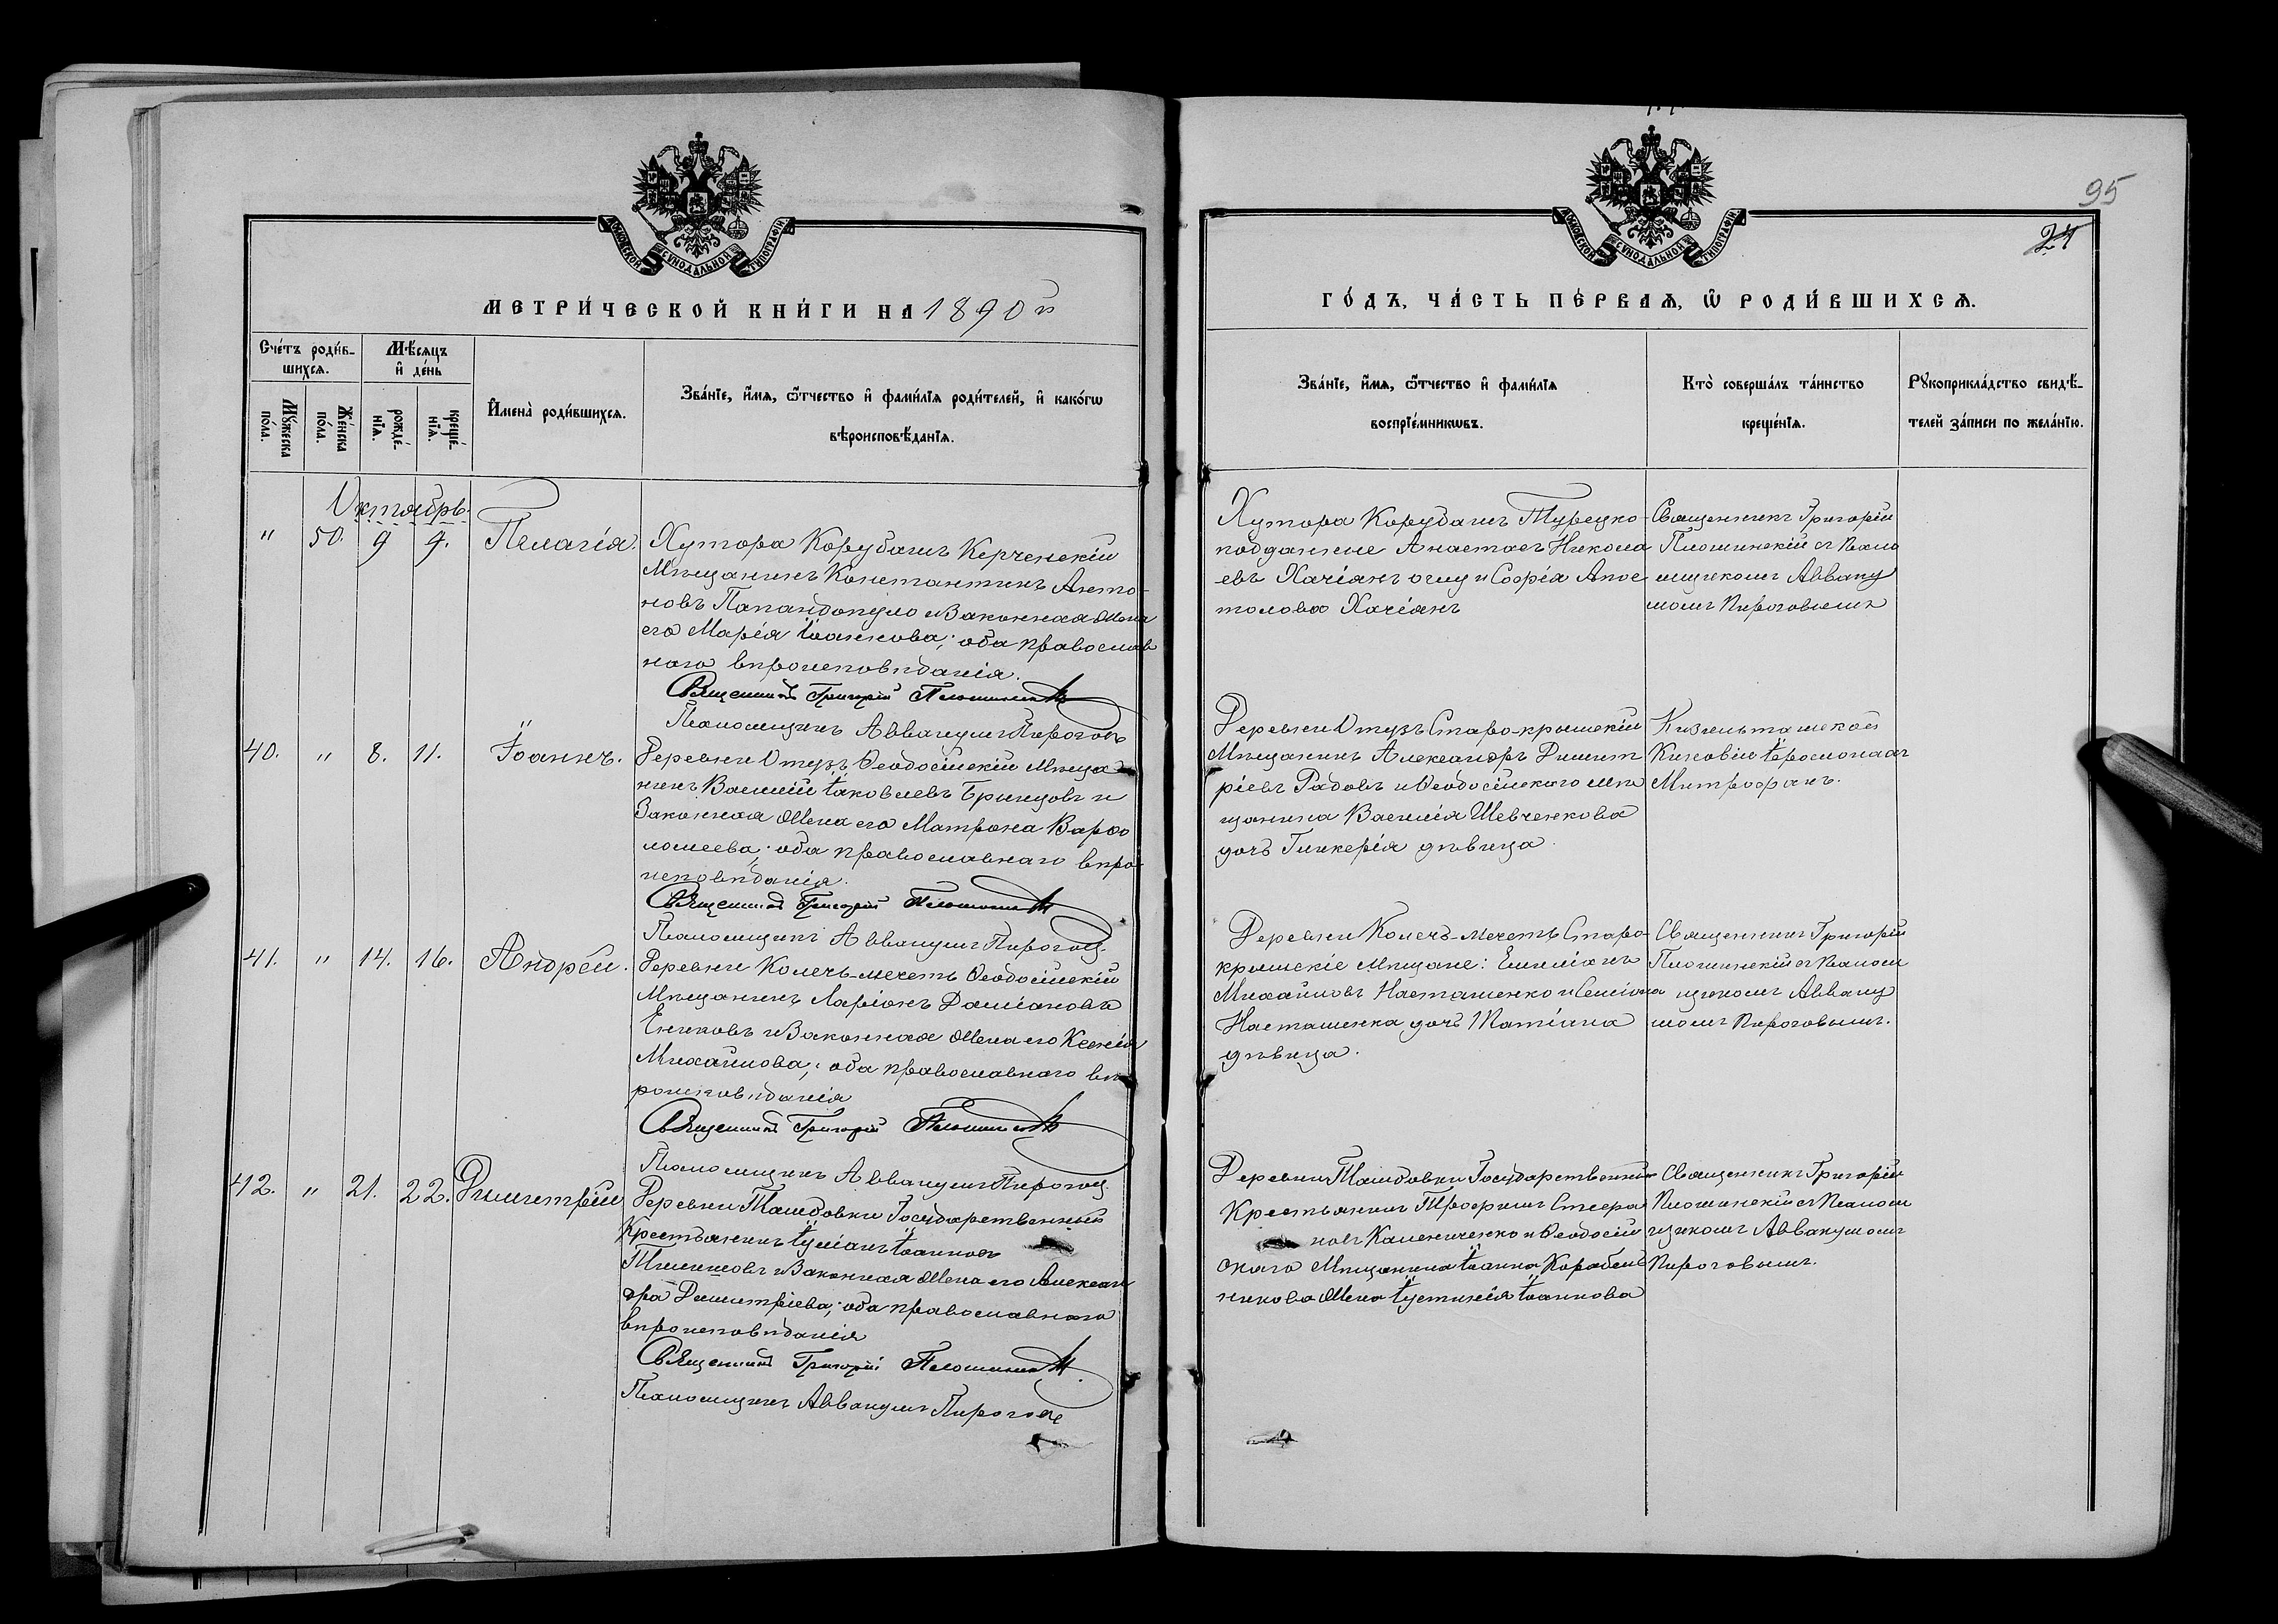 95
24
МОСКОВСКОЙ СѴНОДАЛЬНОЙ ТИПОГРАФІИ
МЕТРИ́ЧЕСКОЙ КНИ́ГИ НА 1890й
Сче́тъ роди́в-
шихсѧ.
Мѣ́сѧцъ
и҆ де́нь
Мꙋ́жеска
по́ла.
Же́нска
по́ла.
рожде́-
нїѧ.
креще́-
нїѧ.
И҆мена̀ роди́вшихсѧ.
Зва́нїе, и҆́мѧ, ѻ҆́тчество и҆ фами́лїѧ роди́телей, и҆ како́гѡ
вѣроисповѣ́данїѧ.
Октябрь
" 50. 9 9. Пелагія.
Хутора Корубашъ Керченскій
Мѣщанинъ Константинъ Анто-
новъ Папандопуло и Законная Жена
его Марія Іоаннова; оба православ
наго вѣроисповѣданія.
Священникъ Григорій
Псаломщикъ Аввакумъ Пироговъ
40. " 8. 11. Іоаннъ.
Деревни Отузъ Ѳеодосійскій Мѣща
нинъ Василій Іаковлевъ Бринцовъ и
Законная Жена его Матрона Варѳо
ломеева; оба православнаго вѣро
исповѣданія.
Священникъ Григорій
Псаломщикъ Аввакумъ Пироговъ
41. " 14. 16. Андрей.
Деревни Колечь-мечеть Ѳеодосійскій
Мѣщанинъ Ларіонъ Даміановъ
Ениковъ и Законная Жена его Ксенія
Михайлова; оба православнаго вѣ
роисповѣданія
Священникъ Григорій
Псаломщикъ Аввакумъ Пироговъ
42. " 21. 22. Димитрій
Деревни Ташбовки Государственный
Крестьянинъ Іуліанъ Іоанновъ
и Законная Жена его Алексан
дра Димитріева; оба православнаго
вѣроисповѣданія
Священникъ Григорій
Псаломщикъ Аввакумъ Пироговъ
МОСКОВСКОЙ СѴНОДАЛЬНОЙ ТИПОГРАФІИ
ГО́ДЪ, ЧА́СТЬ ПЕ́РВАѦ, Ѡ҆ РОДИ́ВШИХСѦ.
Зва́нїе, и҆́мѧ, ѻ҆́тчество и҆ фами́лїѧ
воспрїе́мникѡвъ.
Кто̀ соверша́лъ та́инство
креще́нїѧ.
Рꙋкоприкла́дство свидѣ́-
телей за́писи по жела́нїю.
Хутора Корубашъ Турецко-
подданные Анастасъ Никола
евъ Хачіянъ оглу и Софія Апос
толова Хачіянъ
Священникъ Григорій
Плошинскій съ Псало
мщикомъ Авваку
момъ Пироговымъ
Деревни Отузъ Старо-крымскій
Мѣщанинъ Александръ Димит
ріевъ Радовъ и Ѳеодосійскаго мѣ
щанина Василія Шевченкова
дочь Гликерія дѣвица.
Кизильташской
Киновіи Іеромонахъ
Митрофанъ.
Деревни Колечь-мечеть Старо-
крымскіе Мѣщане: Емиліанъ
Михайловъ Насташенко и Симіона
Насташенка дочь Татіана
дѣвица.
Священникъ Григорій
Плошинскій съ Псалом
щикомъ Авваку
момъ Пироговымъ.
Деревни Ташбовки Государственный
Крестьянинъ Трофимъ Стефа
новъ Калениченко и Ѳеодосій
скаго Мѣщанина Іоанна Корабель
никова Жена Іустинія Іоаннова
Священникъ Григорій
Плошинскій съ Псалом
щикомъ Аввакумомъ
Пироговымъ.